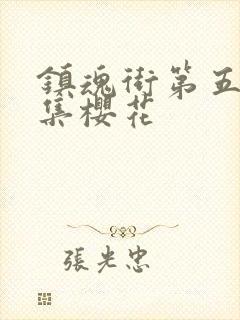 鎮魂街第五
集櫻花
張光忠